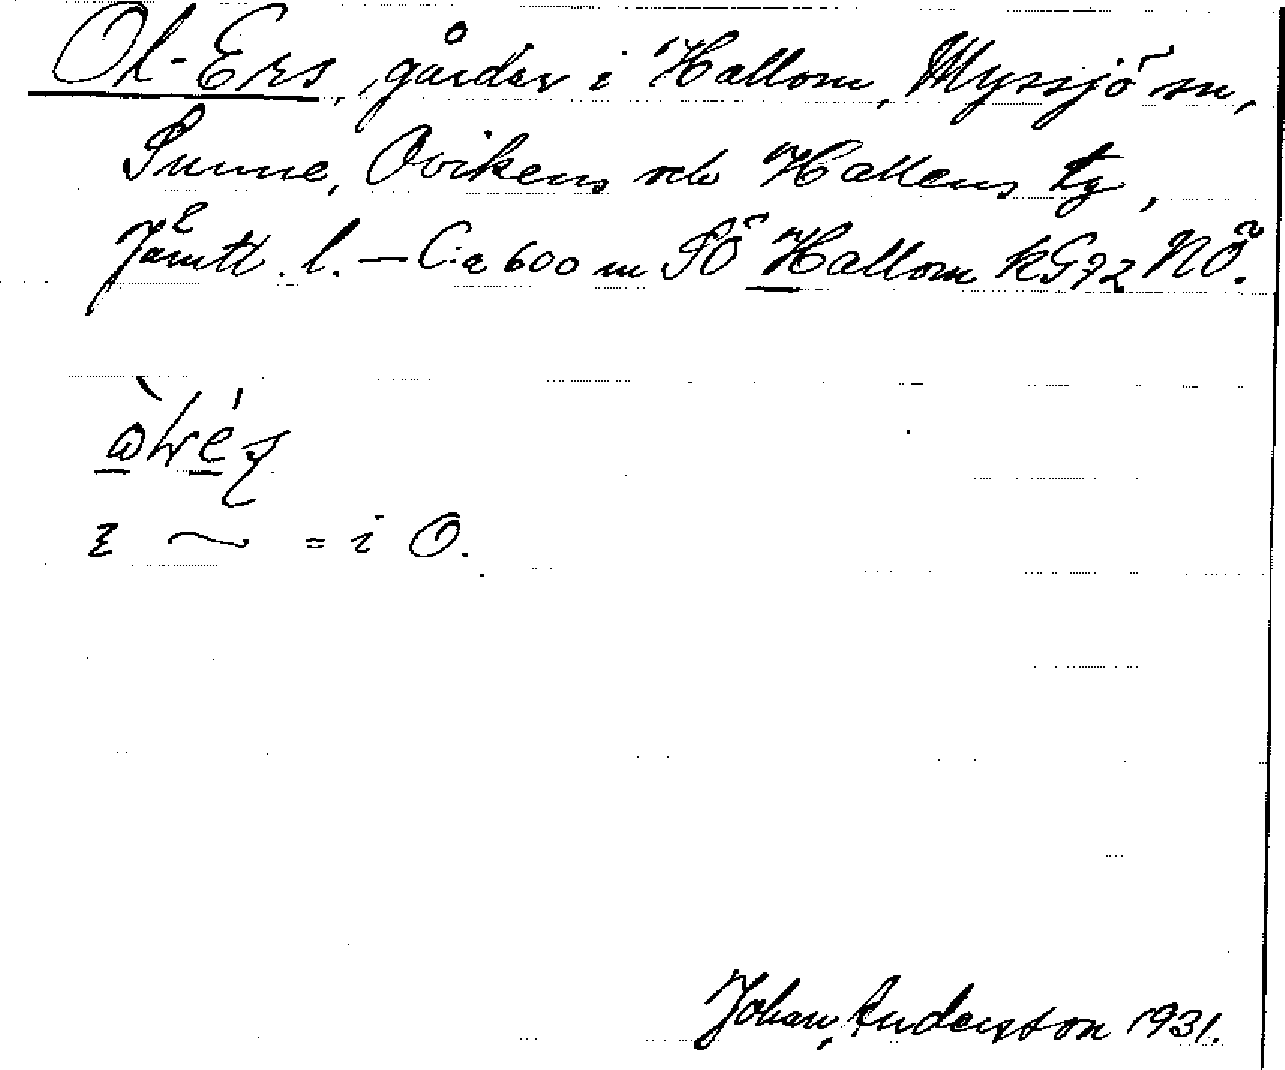 Ol-Ers, gårdar i Hallom, Myssjö sn,
Sunne, Ovikens och Hallens tg,
Jämtl. l. — C:a 600 m SÖ Hallom kG72 NÖ.
= i O.
Johan Andersson 1931.